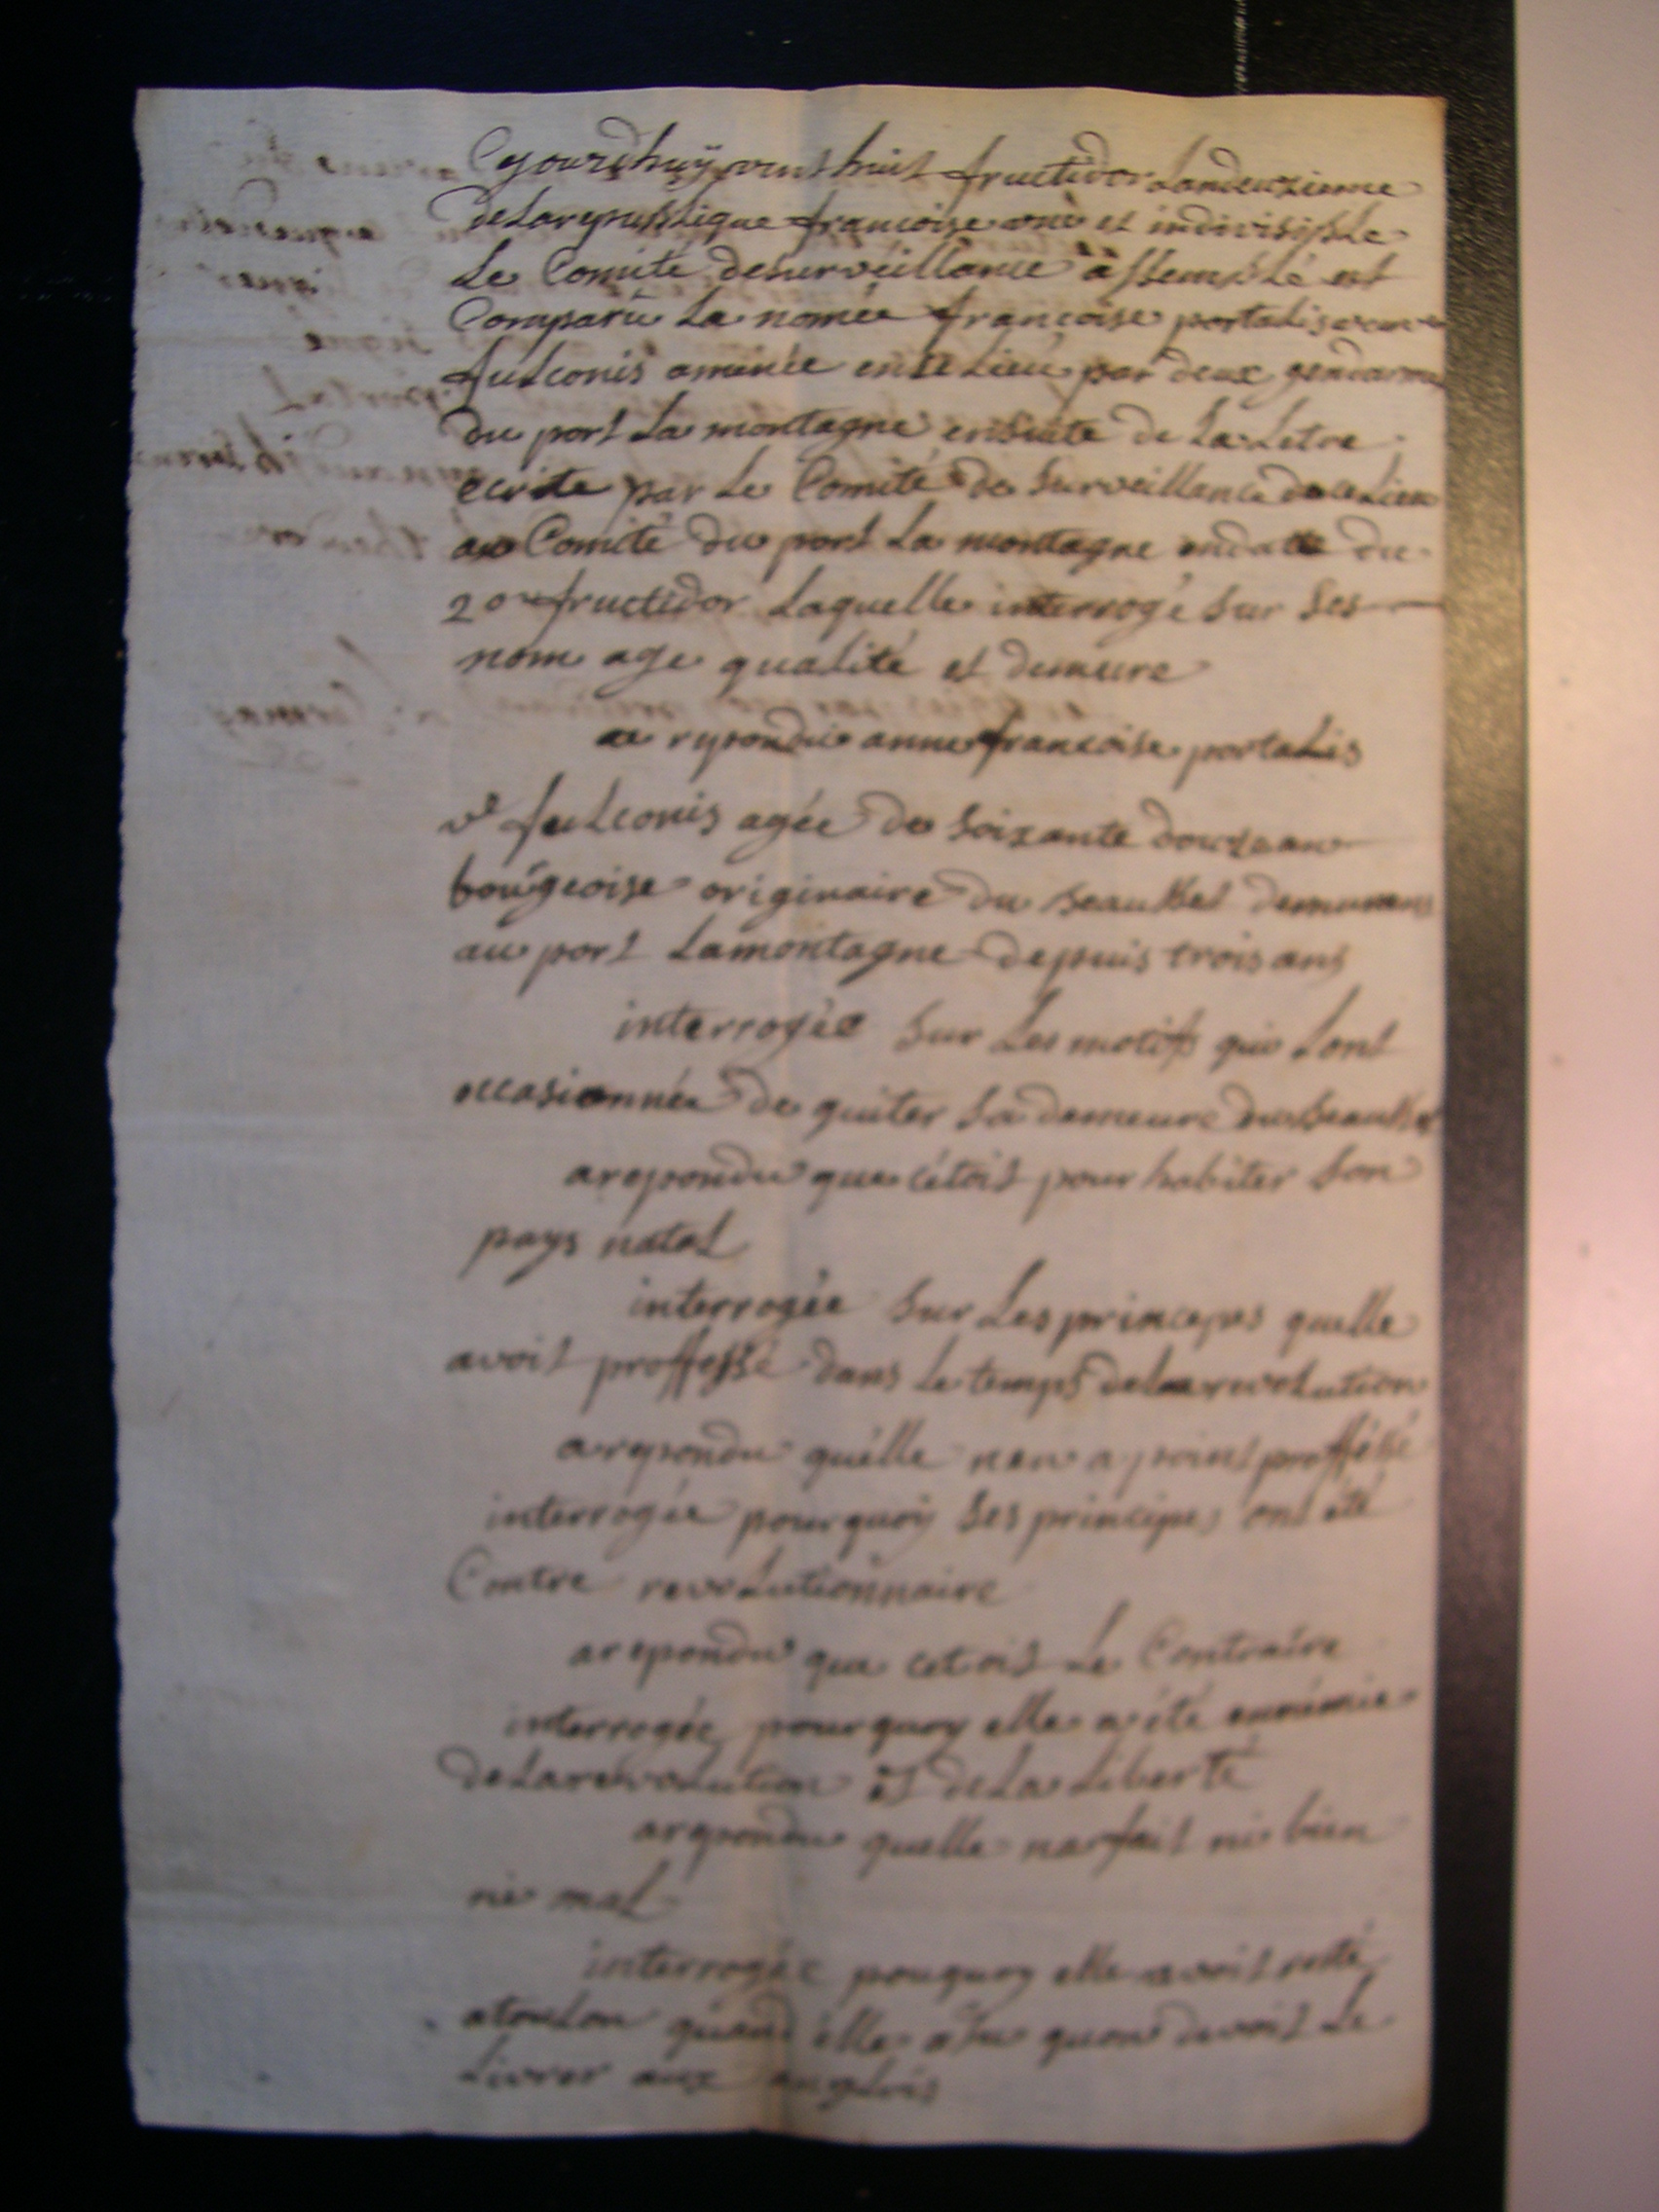 Cejourdhuÿ vint huit fructidor Landeuxieme
de La republique francoise une et indivisible
Le Comité de surveillance assemblé est
Comparüe La nomée francoise portalis veuve
fulconis aménée en ce Lieu par deux gendarme
du port La montagne ensuite de La Letre
ecrite par Le Comité de surveillance de ce Lieu
au Comité du port La montagne en date du
20 fructidor Laquelle interrogé sur ses
nom age qualité et demeure
a repondu anne francoise portalis
ve fulconis agée de soixante douze ans
bourgeoise originaire du beausset demurant
au port Lamontagne depuis trois ans
interrogée sur Les motifs qui Lont
occasionnée de quiter sa demeure du beausset
a repondu que cétoit pour habiter son
pays natal
interrogée sur Les principes quelle
avoit proffessé dans Le temps de la revolution
a repondu quélle nen a point proffessé
interrogée pourquoy ses principes ont été
Contre revolutionnaire
a repondu que cetoit Le Contraire
interrogée pourquoy elle a été ennémie
de La revolution et de La Liberté
a repondu quelle na fait ni bien
ni mal
interrogée pouquoy elle avoit resté
a toulon quand élle a su quon devoit Le
Livrer aux anglois